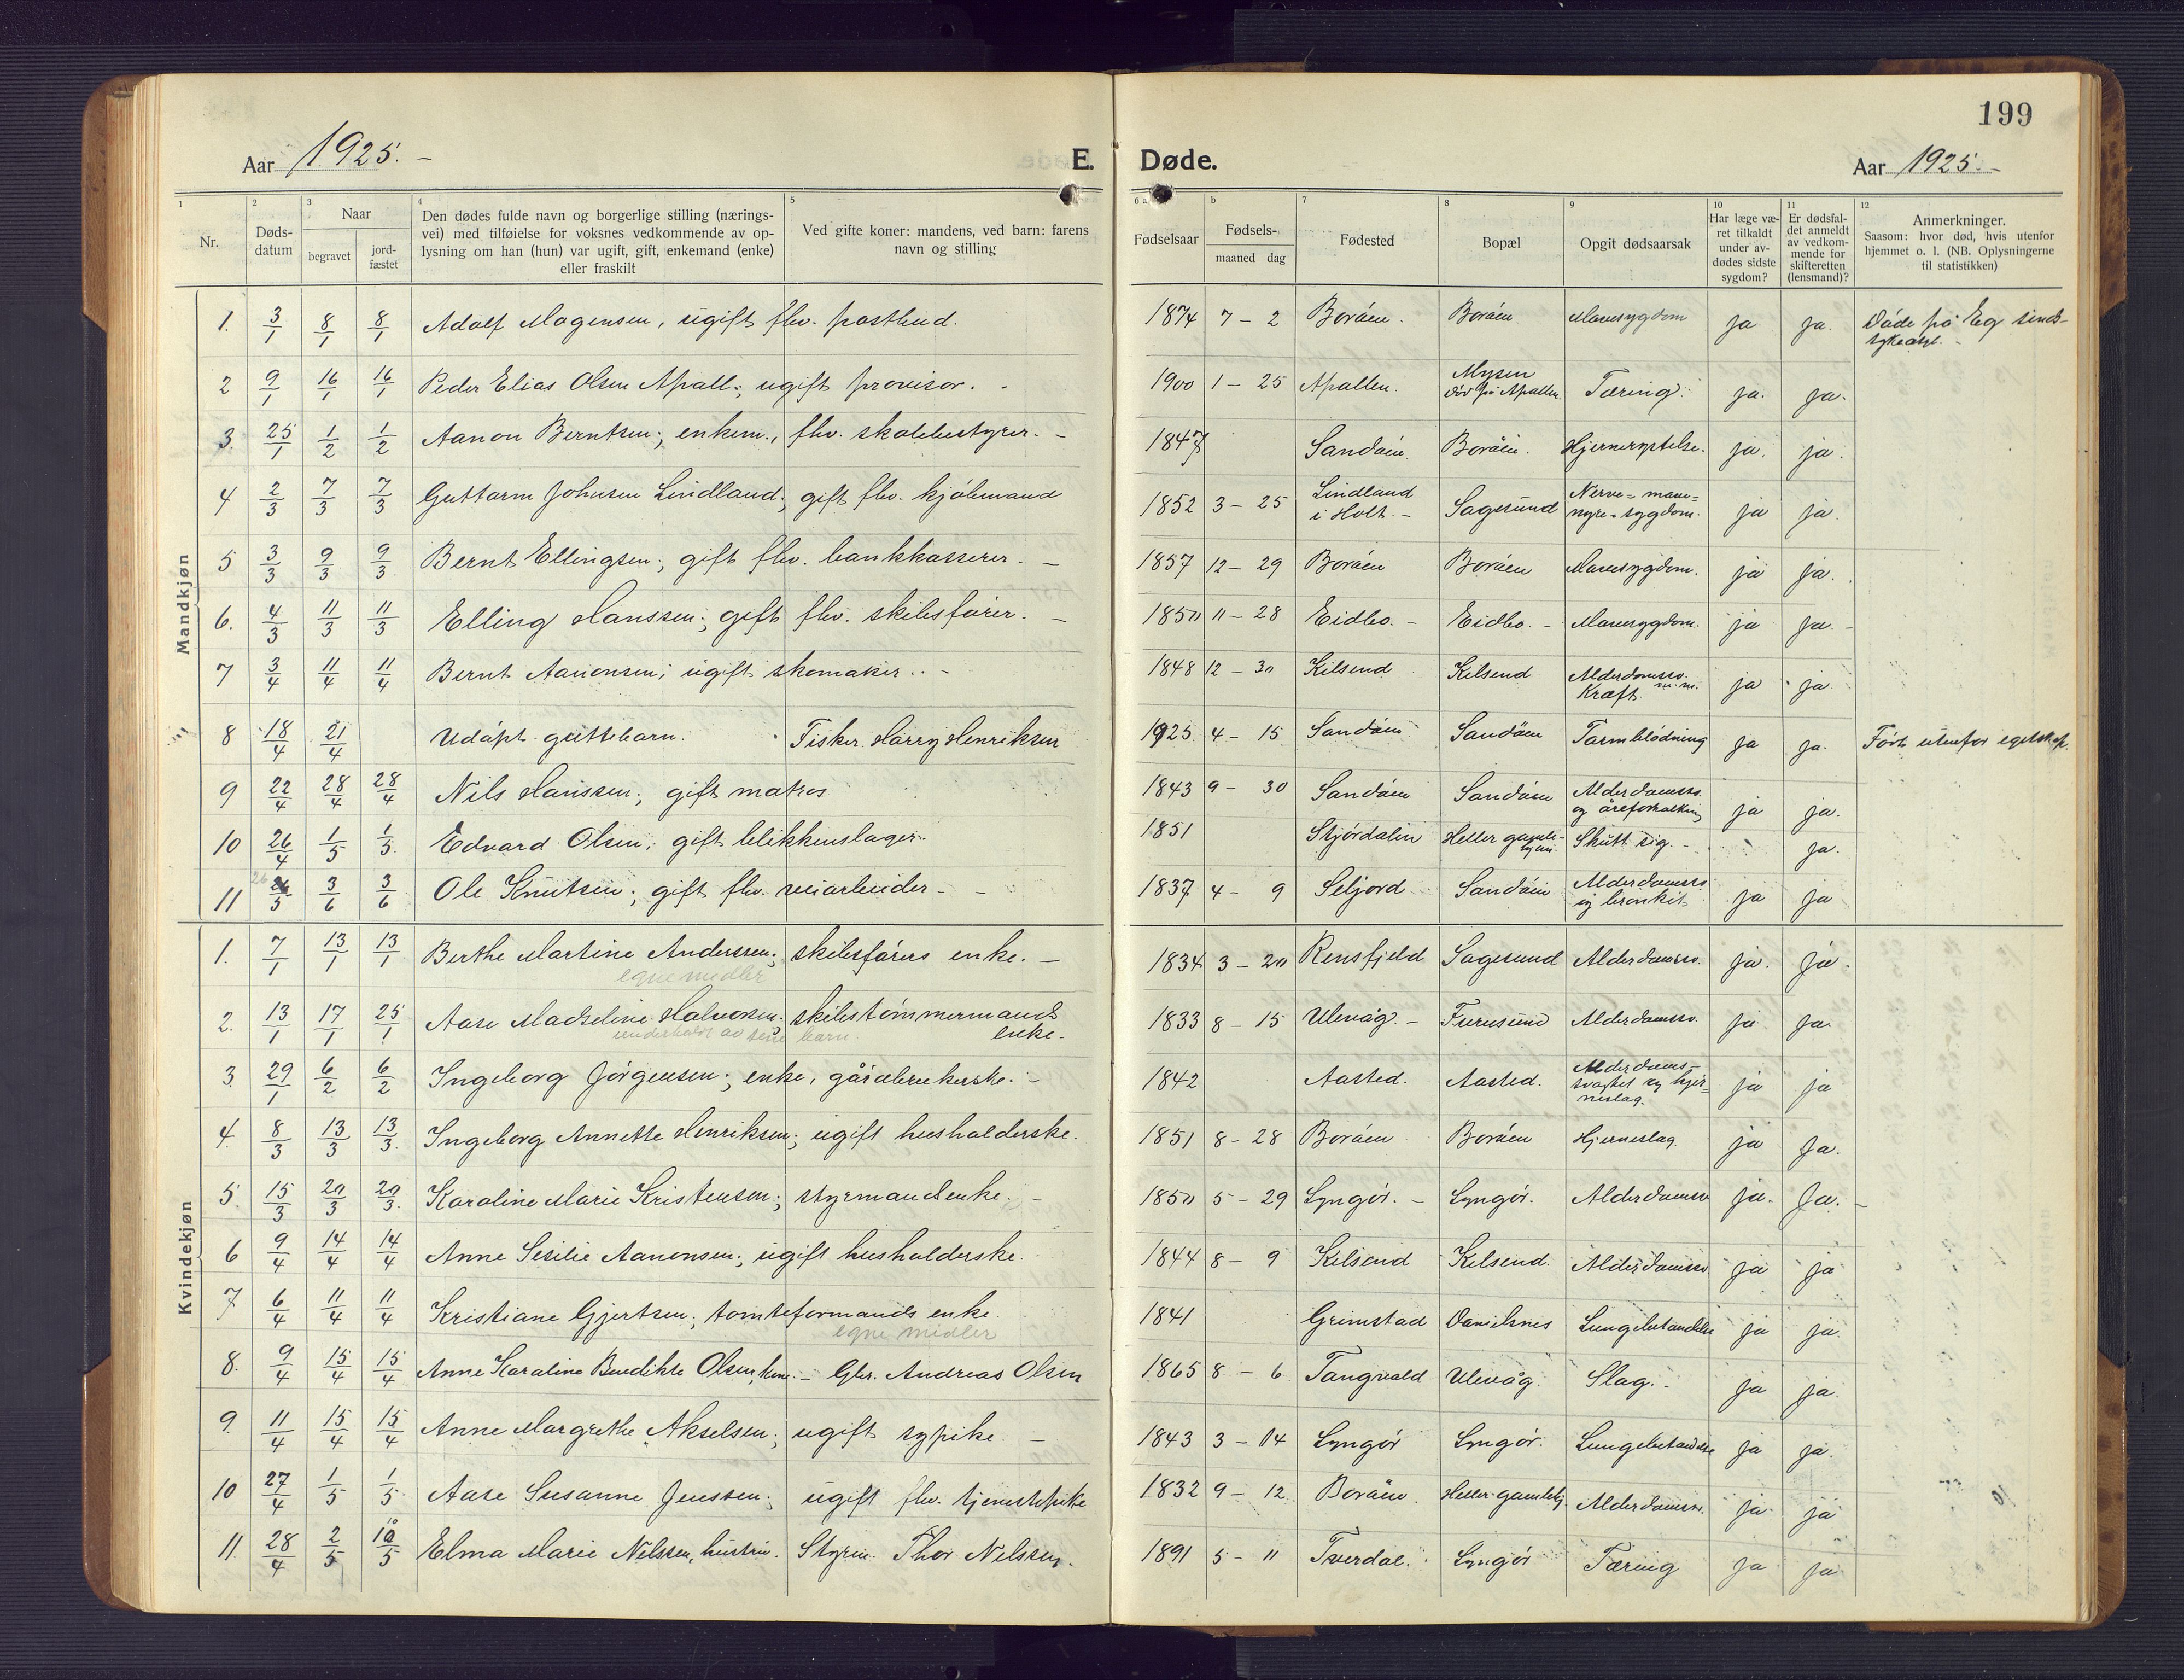 199
Aar 1925. –
E. Døde.
Aar 1925. –
1 Nr.
2 Døds-datum
3 Naar begravet jord-fæstet
4 Den dødes fulde navn og borgerlige stilling (nærings-
vei) med tilføielse for voksnes vedkommende av op-
lysning om han (hun) var ugift, gift, enkemand (enke)
eller fraskilt
5 Ved gifte koner: mandens, ved barn: farens
navn og stilling
6 a Fødselsaar
b Fødsels-
maaned dag
7 Fødested
8 Bopæl
9 Opgit dødsaarsak
10 Har læge væ-
ret tilkaldt
under av-
dødes sidste
sygdom?
11 Er dødsfal-
det anmeldt
av vedkom-
mende for
skifteretten
(lensmand)?
12 Anmerkninger.
Saasom: hvor død, hvis utenfor
hjemmet o. l. (NB. Oplysningerne
til statistikken)
Mandkjøn
1. 3/1 8/1 8/1 Adolf Mogensen, ugift fhv. postbud. 1874 7 – 2 Boråen. Boråen Mavesygdom ja ja. Døde på Eg sinds-
sykeasyl. –
2 9/1 16/1 16/1 Peder Elias Olsen Apall; ugift provisor. – 1900 1 – 25 Apallen. Mysen
død på Apallen. Tæring. ja. ja.
3. 25/1 1/2 1/2 Aanon Berntsen; enkem., fhv. skolebestyrer. – 1847 Sandøen. Boråen. Hjernerystelse. ja. ja.
4 2/3 7/3 7/3 Guttorm Johnsen Lindland; gift fhv. kjøbmand 1852 3 – 25 Lindland
i Holt. – Sagesund Nerve= mave=
nyre= sygdom. ja ja.
5 3/3 9/3 9/3 Bernt Ellingsen; gift fhv. bankkasserer. – 1857 12 – 29 Boråen Boråen Mavesygdom. ja ja.
6. 4/3 11/3 11/3 Elling Hanssen; gift fhv. skibsfører. – 1850 11 – 28 Eidbo. – Eidbo. – Mavesygdom. ja ja. –
7 3/4 11/4 11/4 Bernt Aanonsen; ugift skomaker. – 1848 12 – 30 Kilsend Kilsend Alderdomssv.
Kræft m.m. ja ja
8 18/4 21/4 Udøpt guttebarn. Fisker Harry Henriksen 1925. 4 – 15 Sandøen Sandøen Tarmblødning ja ja. Født utenfor egteskap.
9 22/4 28/4 28/4 Nils Hanssen; gift matros 1843 9 – 30 Sandøen Sandøen Alderdomssv.
og åreforkalkning ja ja.
10 26/4 1/5 1/5. Edvard Olsen; gift blikkenslager. 1851 Stjørdalen Heller gamle-
hjem. Skutt sig. – ja.
11 26/5 3/6 3/6 Ole Knutsen; gift fhv. veiarbeider – 1837 4 – 9 Seljord Sandøen Alderdomssv
og bronkit ja ja
Kvindekjøn
1. 7/1 13/1 13/1 Berthe Martine Anderssen; skibsførers enke. – 1834 3 – 20 Rensfjeld Sagesund Alderdomssv. ja. ja.
egne midler
2. 13/1 17/1 25/1 Aase Madseline Halvorsen. skibstømmermands
enke. 1833 8 – 15 Ulevåg. – Furusund Alderdomssv. ja ja.
underholdt av sine barn.
3. 29/1 6/2 6/2 Ingeborg Jørgensen; enke, gårdbrukerske. – 1842 Aasted. Aasted. Alderdoms-
svaghet og hjer-
neslag. ja ja
4. 8/3 13/3 13/3. Ingeborg Annette Henriksen; ugift husholderske. 1851 8 – 28 Boråen Boråen Hjerneslag. ja ja.
5. 15/3 20/3 20/3. Karoline Marie Kristensen; styrmandsenke. – 1850 5 – 29 Lyngør. – Lyngør. Alderdomssv ja. Ja. –
6 9/4 14/4 14/4 Anne Sesilie Aanonsen; ugift husholderske. 1844 8 – 9 Kilsend Kilsend. Alderdomssv ja ja
7 6/4 11/4 11/4 Kristiane Gjertsen; tomteformands enke 1841 Grimstad Danielsnes Lungebetændelse ja ja.
egne midler
8. 9/4 15/4 15/4 Anne Karoline Bendikte Olsen, kone. – Gbr. Andreas Olsen 1865 8 – 6 Tangvald Ulevåg. Slag. – ja ja.
9. 11/4 15/4 15/4 Anne Margrethe Akselsen; ugift sypike. – 1843 3 – 14 Lyngør Lyngør. Lungebetændelse ja ja.
10 27/4 1/5 1/5. Aase Susanne Jenssen; ugift fhv. tjenestepike 1832 9 – 12 Boråen. Heller gamlehj. Alderdomssv. ja. ja
11. 28/4 2/5 10/5 Elma Marie Nilssen, hustru. Styrm. Thor Nilssen. 1891 5 – 11 Tverdal. Lyngør Tæring ja ja